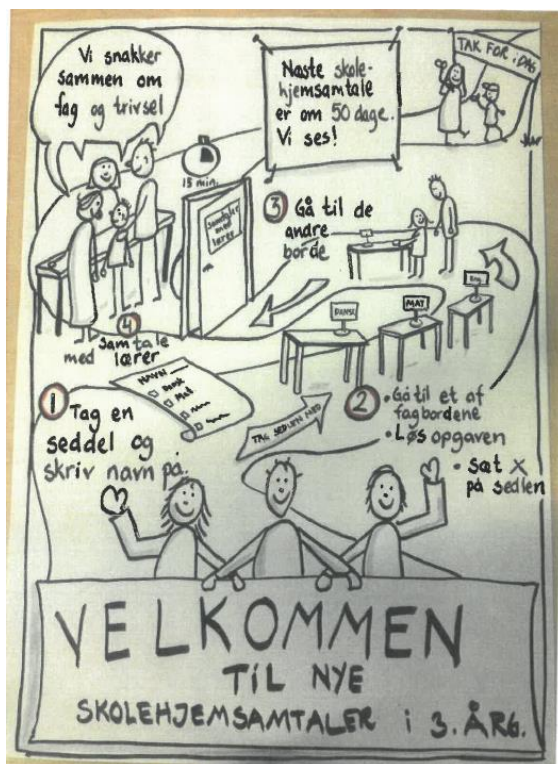 Vi snakker
sammen om
fag og trivsel
Næste skole-
hjemsamtale
er om 50 dage.
Vi ses!
TAK FOR i DAG
15 min.
Samtaler
med
lærer
3 Gå til de
andre
borde
4
Samtale
med lærer
DANSK
MAT
NAVN
Dansk
Mat
1 Tag en
seddel og
skriv navn på.
TAG SEDLEN MED
2 • Gå til et af
fagbordene
• Løs opgaven
• Sæt X
på sedlen
VELKOMMEN
TIL NYE
SKOLEHJEMSAMTALER i 3. ÅRG.